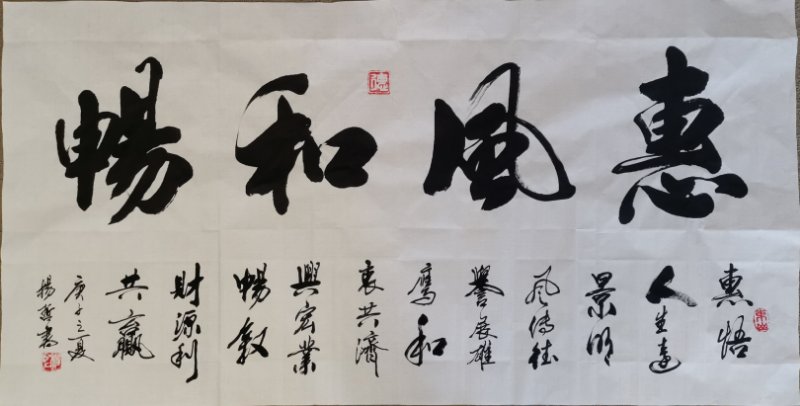 惠風和暢
惠悟
人生達
景明
風傳佳
譽展雄
鷹和
衷共濟
興宏業
暢敘
財源利
共贏
庚子之夏
楊書